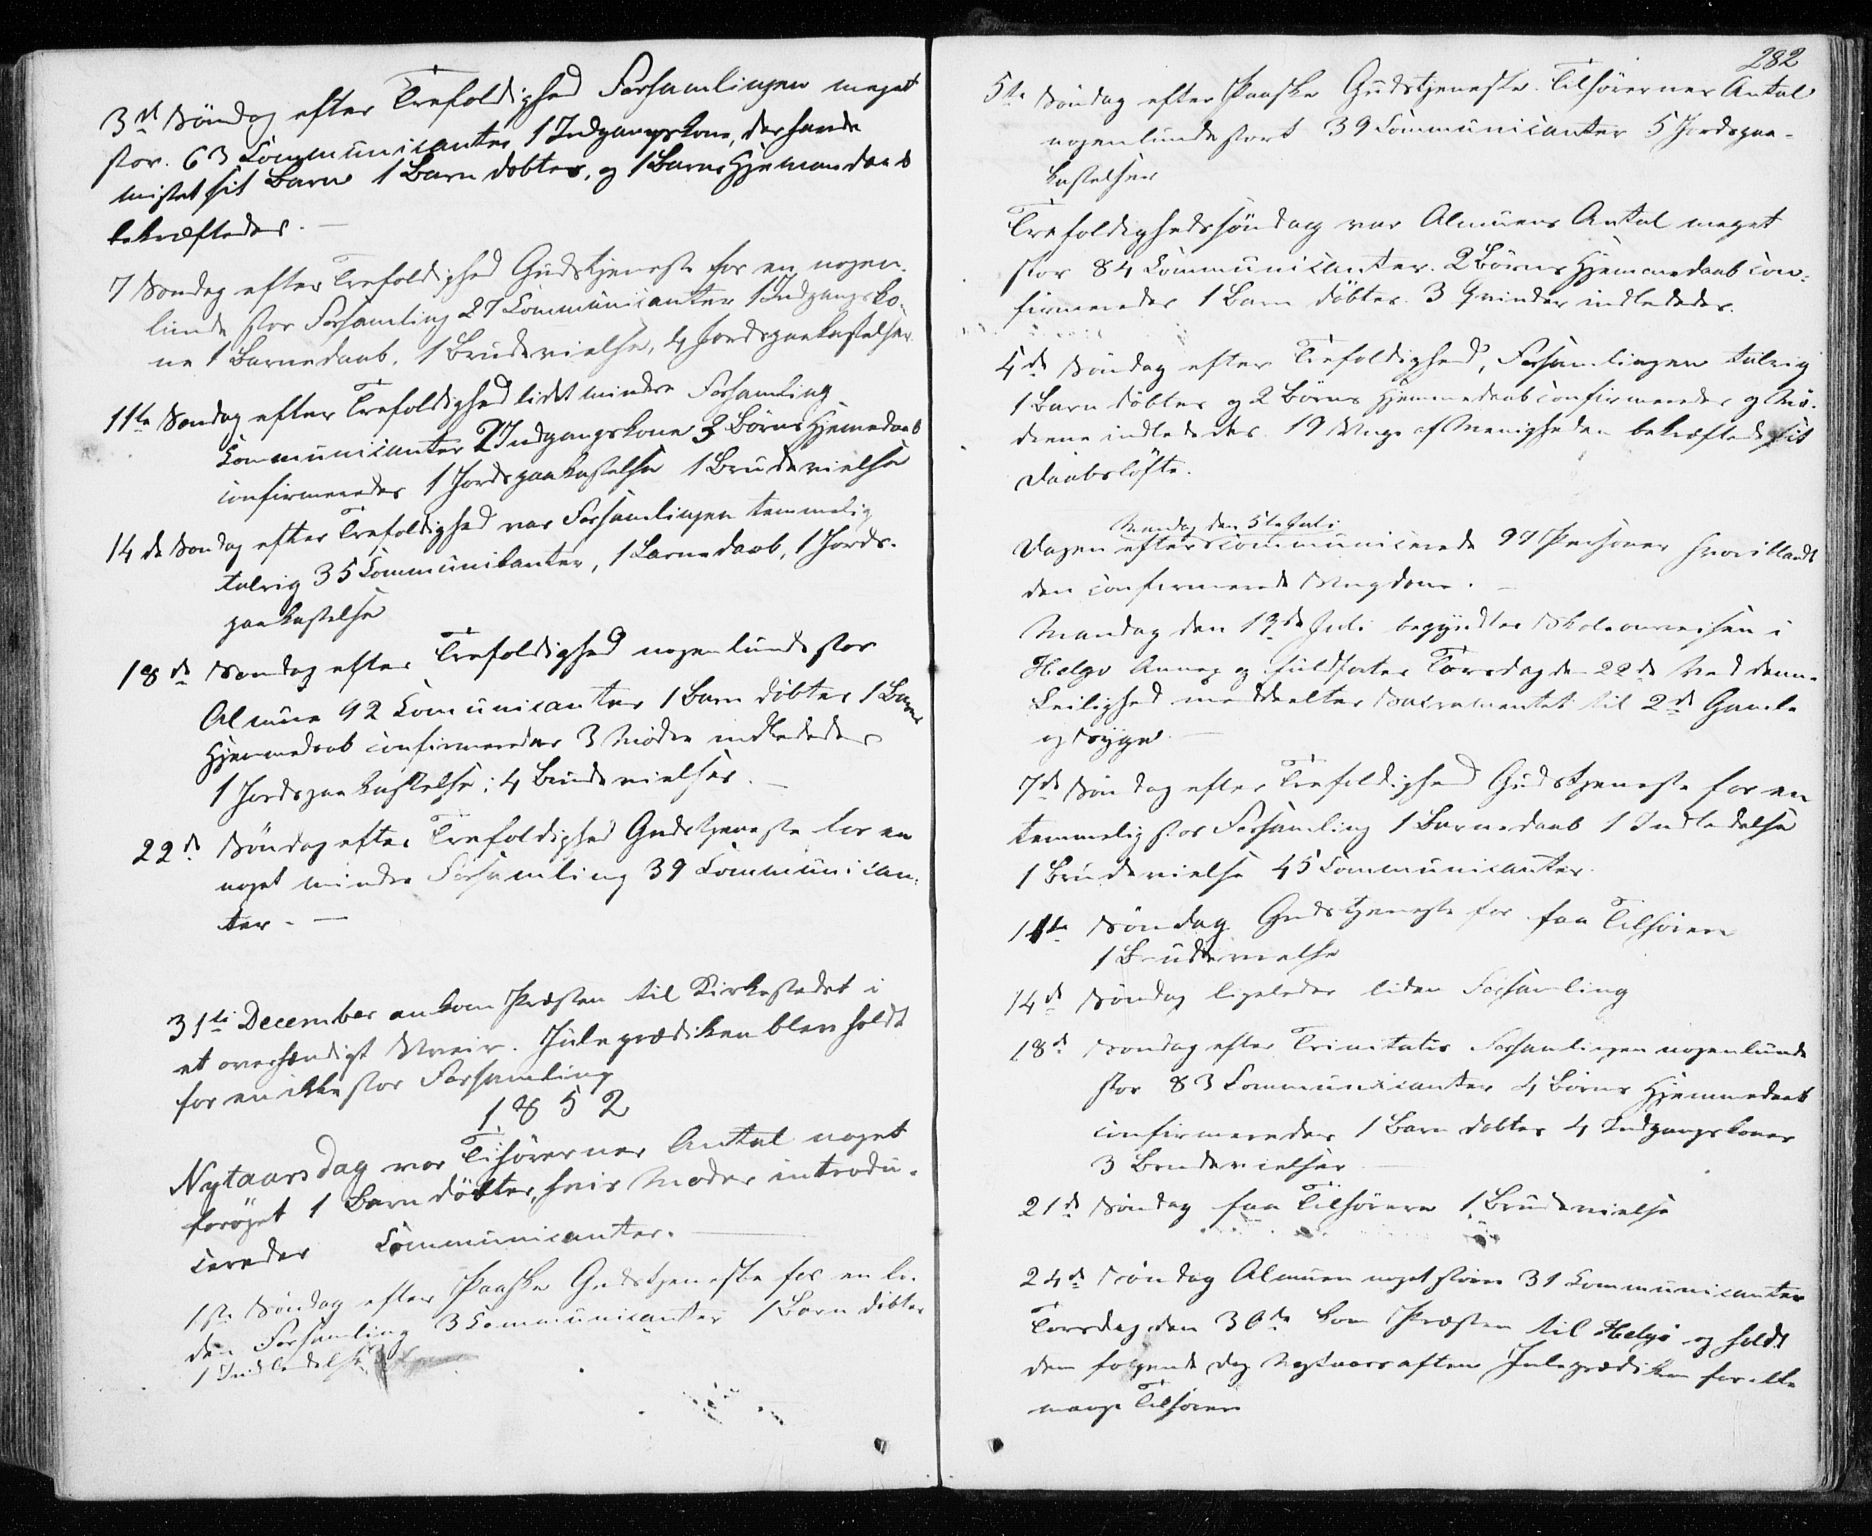 3die Søndag efter Trefoldighed Forsamlingen meget
stor. 63 Communicanter, 1 Indgangskone, der havde
mistet sit Barn 1 Barn døbtes, og 1 Barns Hjemmedaab
bekræftedes. —
7 Søndag efter Trefoldighed Gudstjeneste for en nogen-
lunde stor Forsamling 27 Communicanter 1 Indgangsko-
ne 1 Barnedaab, 1 Brudevielse, 4 Jordspaakastelser
11te Søndag efter Trefoldighed lidt mindre Forsamling
Communicanter 2 Indgangskone 3 Børns Hjemedaab
confirmeredes 1 Jordspaakastelse 1 Brudevielse
14de Søndag efter Trefoldighed var Forsamlingen temmelig
talrig 35 Communikanter, 1 Barnedaab, 1 Jords-
paakastelse
18de Søndag efter Trefoldighed nogenlunde stor
Almue 92 Comunicanter 1 Barn døbtes 1 Barns
Hjemmedaab confirmeredes 3 Mødre indlededes
1 Jordspaakastelse: 4 Brudevielser. —
22de Søndag efter Trefoldighed Gudstjeneste for en
noget mindre Forsamling 39 Communican-
ter. —
31te December ankom Præsten til Kirkestedet i
et overhændigt Uveir. Juleprædiken blev holdt
for en ikke stor Forsamling
1852
Nytaarsdag var Tihørernes Antal noget
forøget 1 Barn døbtes, hvis Moder introdu-
ceredes Communicanter. —
1ste Søndag efter Paaske Gudstjeneste for en li-
den Forsamling 3 Communicanter 1 Barn døbtes
1 Indledelse
282
5te Søndag efter Paaske Gudstjeneste. Tilhørernes Antal
nogenlunde stort 39 Communicanter 5 Jordspaa-
kastelser
Trefoldighedssøndag var Almuens Antal meget
stor 84 Communicanter. 2 Børns Hjemmedaab con-
firmeredes 1 Barn døbtes. 3 Qvinder indlededes.
4de Søndag efter Trefoldighed, Forsamlingen talrig
1 Barn døbtes og 2 Børns Hjemmedaab confirmeredes og Mø-
drene indlededes. 19 Unge af Menigheden bekræftede sit
Daabsløfte.
Mandag den 5te Juli
Dagen efter communicerede 97 Personer hvoriblandt
den confirmerede Ungdom. —
Mandag den 19de Juli begyndtes Skolevisen i
Helgø Annex og fuldførtes Torsdag den 22de Ved denne
Leilighed meddeeltes Sacramentet til 2de Gamle
og Syge. —
7de Søndag efter Trefoldighed Gudstjeneste for en
temmelig stor Forsamling 1 Barnedaab 1 Indledelse
1 Brudevielse 45 Communicanter.
11te Søndag Gudstjeneste for faa Tilhørere
1 Brudevielse
14de Søndag ligeledes liden Forsamling
18de Søndag efter Trinitatis Forsamlingen nogenlunde
stor 83 Communicanter 4 Børns Hjemmedaab
confirmeredes 1 Barn døbtes 4 Indgangskoner
3 Brudevielser —
21de Søndag faa Tilhørere 1 Brudevielse
24de Søndag Almuen noget større 31 Communicanter
Torsdag den 30te kom Præsten til Helgø og holdt
den følgende Dag Nytaarsaften Juleprædiken for ikke
mange Tilhørere